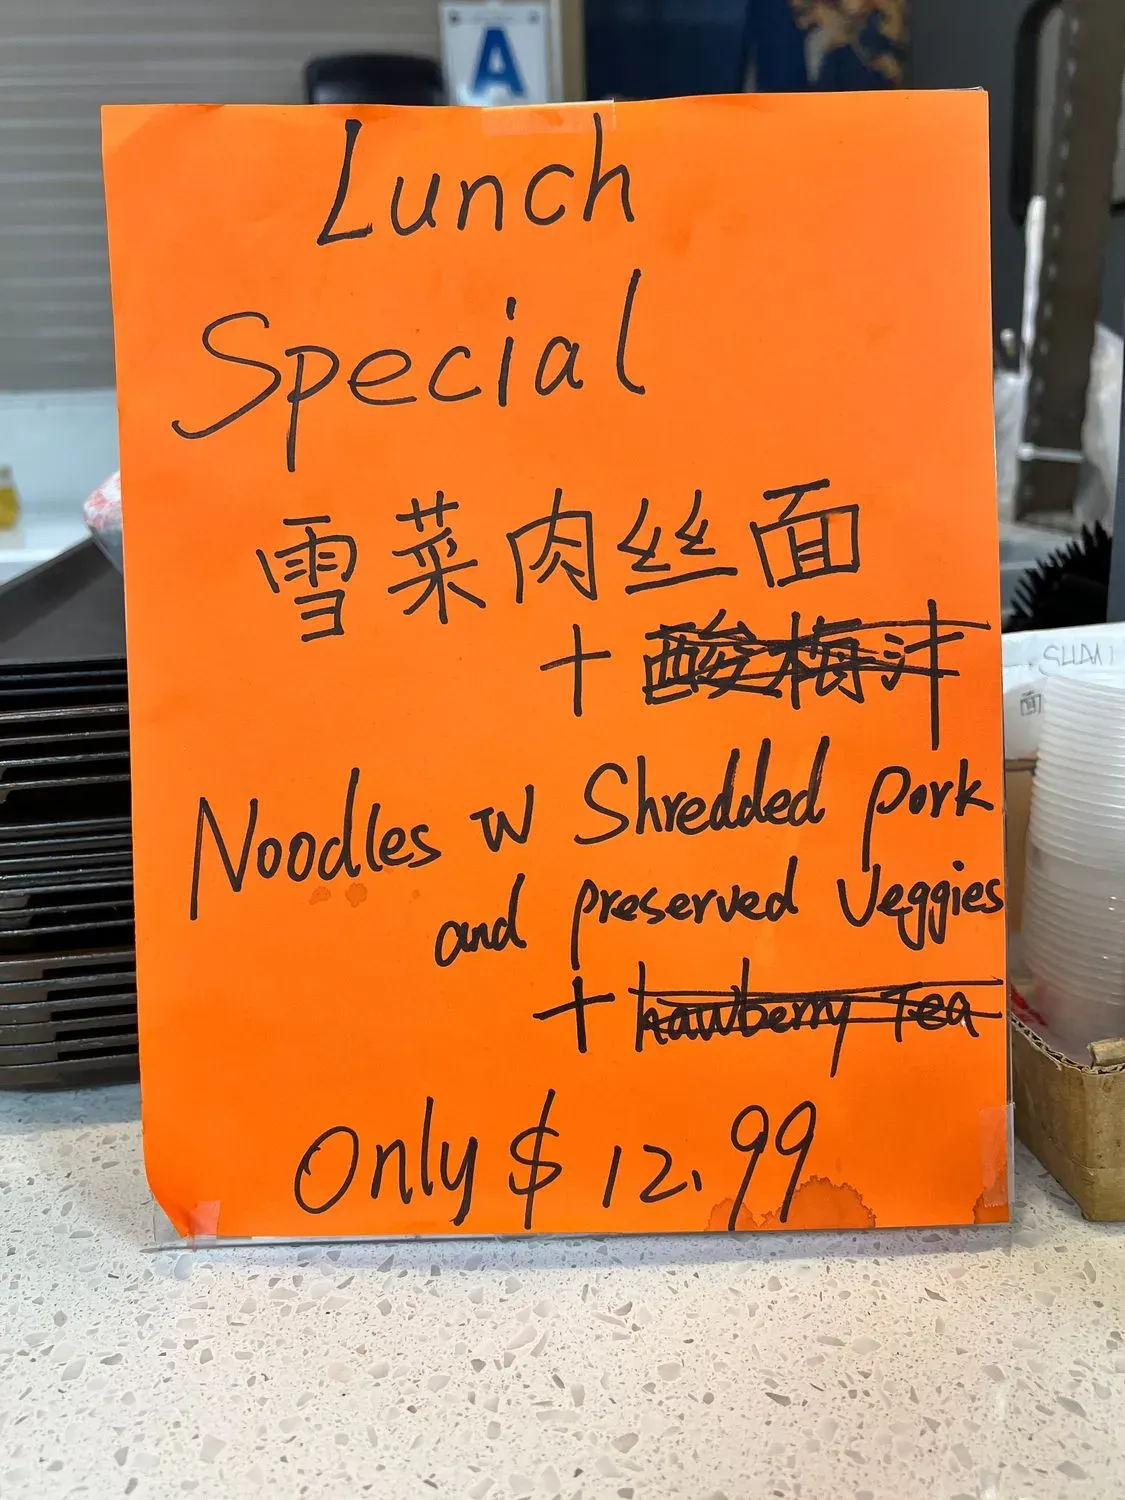 A
Lunch
Special
雪菜肉丝面
+ 酸梅汁
Noodles w Shredded pork
and preserved Veggies
+ hawberry Tea
Only $ 12.99
面